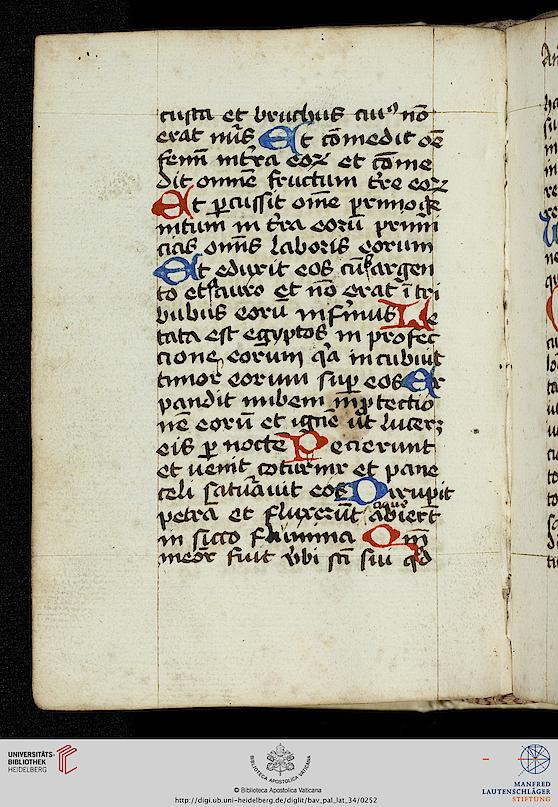 custa et bruchus cui⁹ nō
erat nūs Et cōmedit oē
fenū in t̄ra eoꝝ et cōme
dit omne fructum t̄re eoꝝ
Et ꝑcussit om̄e primoge
nitum in t̄ra eorū primi
cias omīs laboris eorum
Et eduxit eos cū argen
to et auro et nō erat ī tri
bubus eorū infirmus Le
tata est egyptos in profec
tione eorum qͣa incubuit
timor eorum suꝑ eos Ex
pandit nubem in ꝓtectio
nē eorū et ignē ut lucerꝫ
eis ꝑ nocte Pecierunt
et uenit coturnix et pane
celi saturauit eos Dirrupit
petrā et fluxerūt aquę abierūt
in sicco flumina Qm̄
meor fuit v̄bi scī sui qd̄
UNIVERSITÄTS-
BIBLIOTHEK
HEIDELBERG
BIBLIOTECA APOSTOLICA VATICANA
© Biblioteca Apostolica Vaticana
http://digi.ub.uni-heidelberg.de/diglit/bav_pal_lat_34/0252
MANFRED
LAUTENSCHLÄGER
STIFTUNG